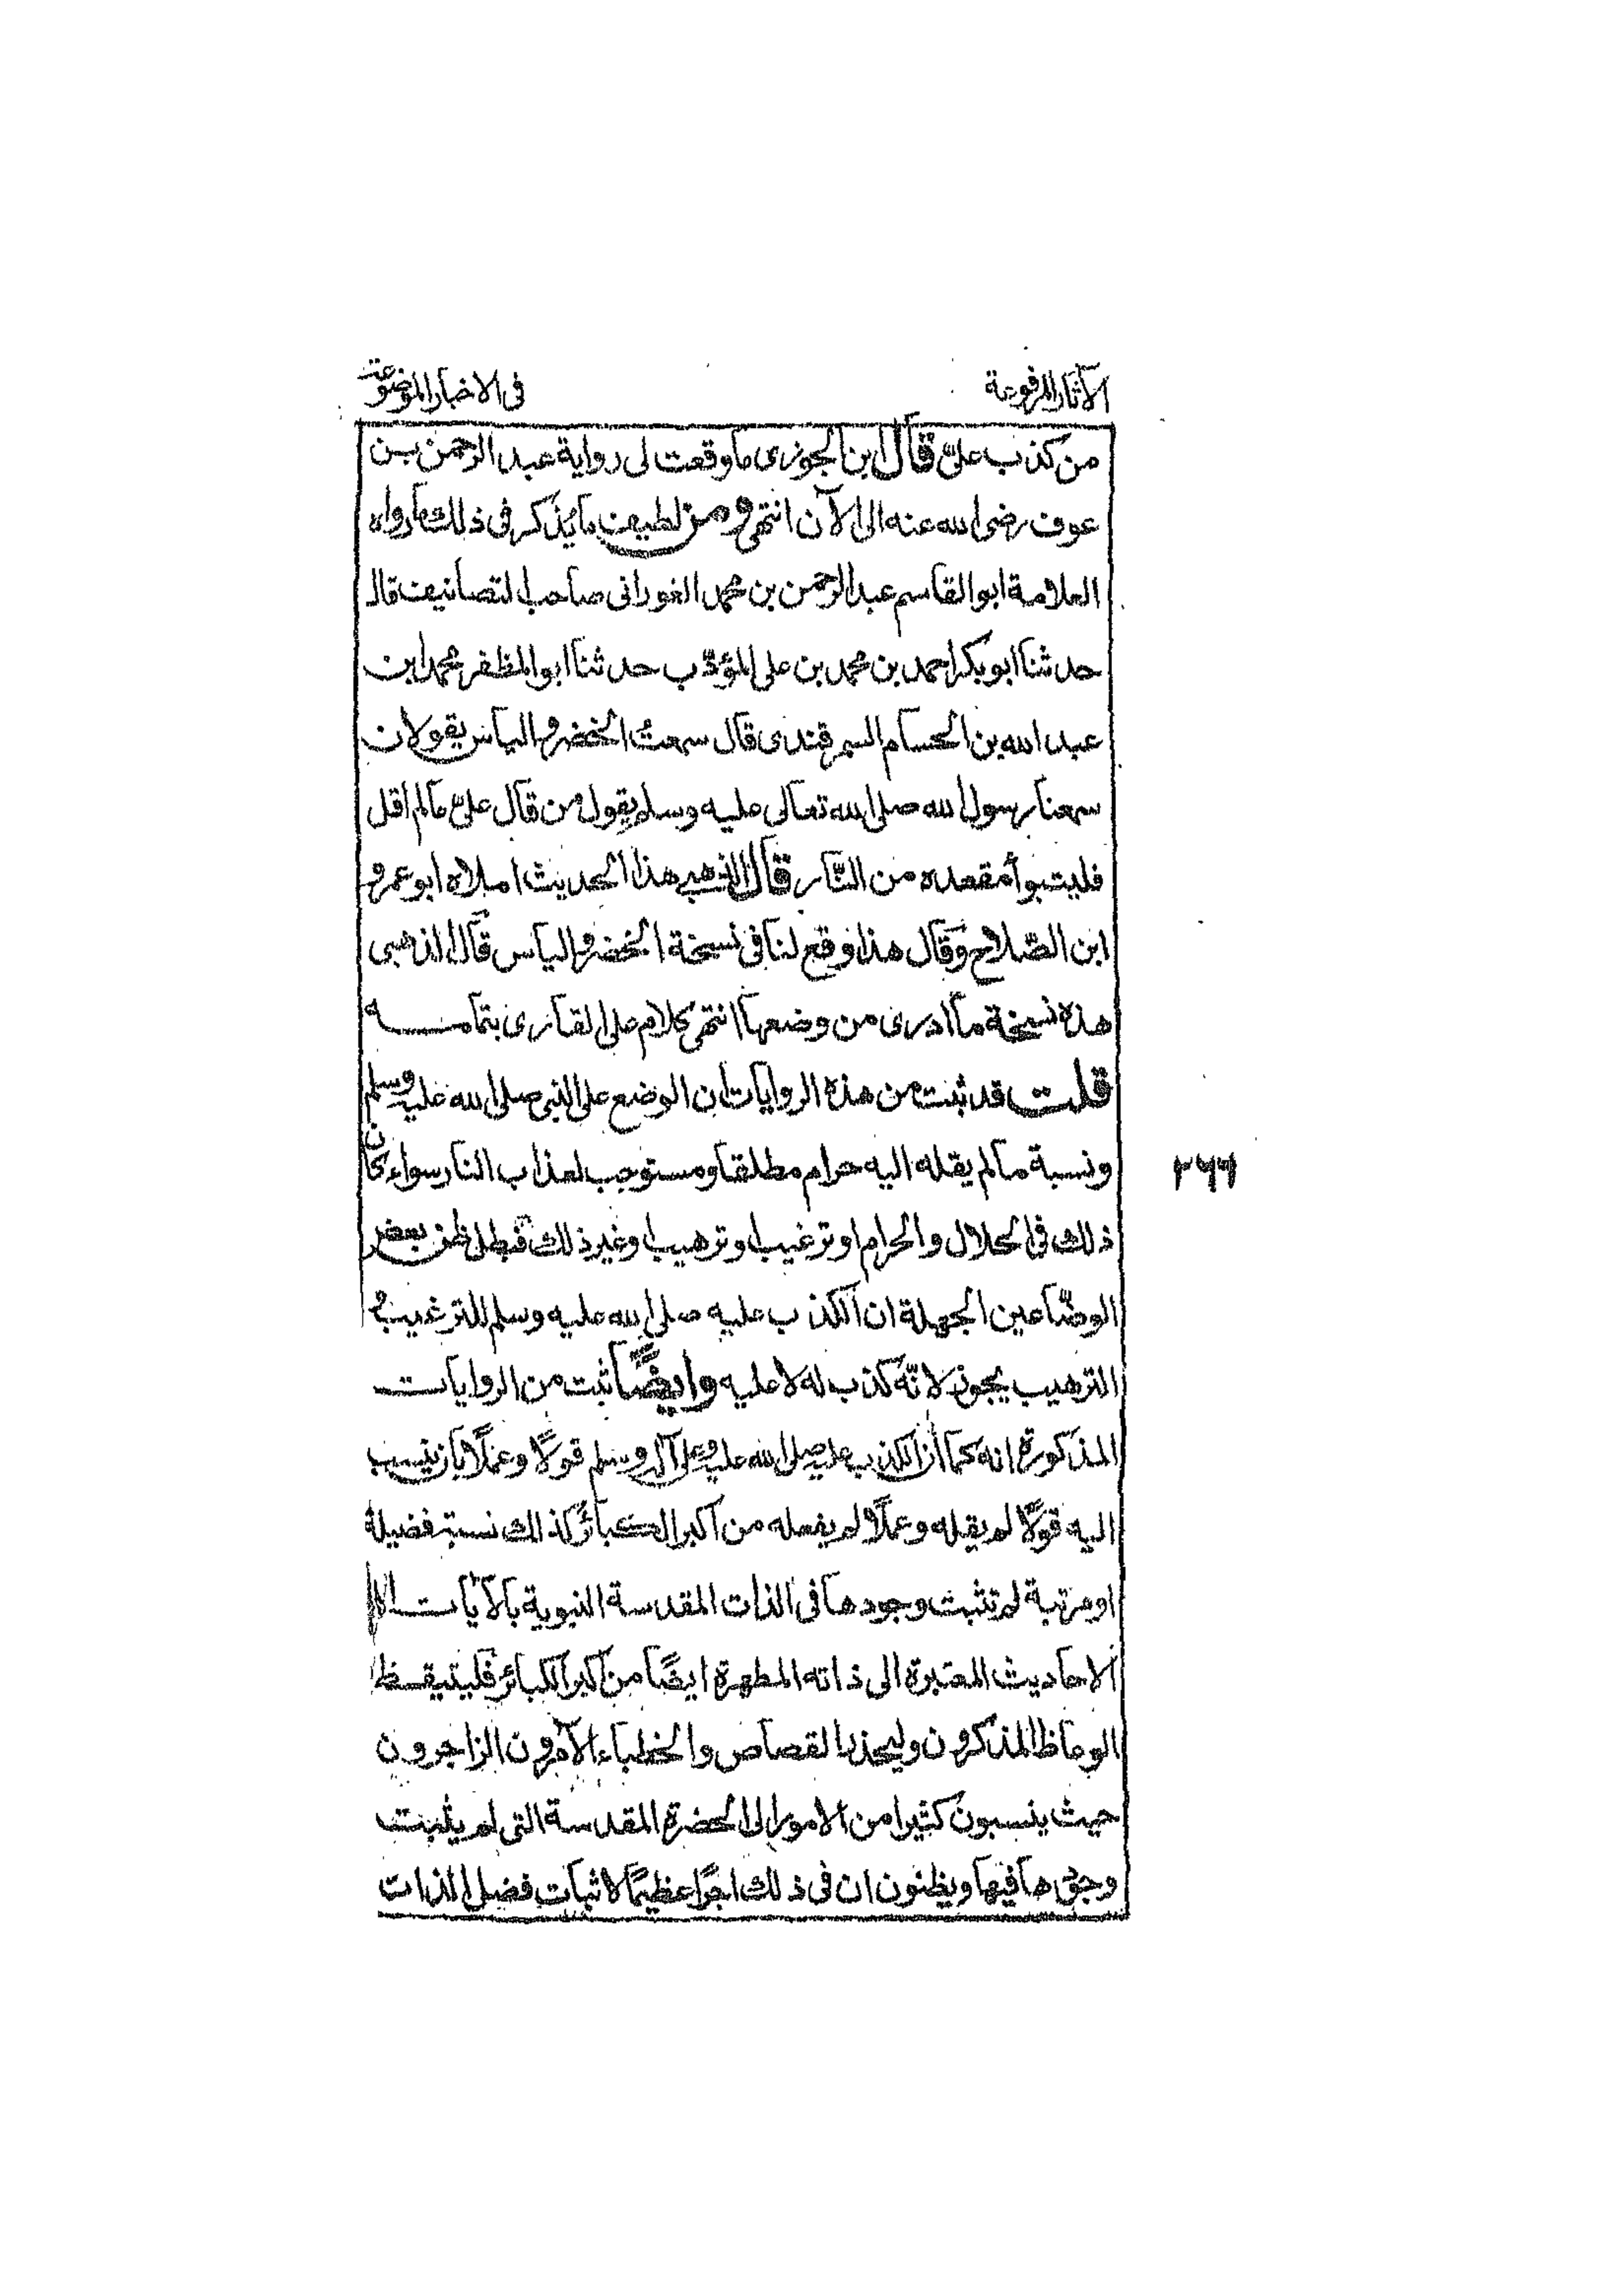 الآثار المرفوعة
فى الاخبار الموضوعة
من كذب علىّ قال ابن الجوزى ما وقعت لى رواية عبد الرحمن بن
عوف رضى الله عنه الى الآن انتهى ومن لطيف ما يذكر فى ذلك ما رواه
العلامة ابو القاسم عبد الرحمن بن محمد الفورانى صاحب التصانيف قال
حدثنا ابو بكر احمد بن محمد بن على المؤدّب حدثنا ابو المظفر محمد ابن
عبد الله بن الحسام السمرقندى قال سمعت الخضر والياس يقولان
سمعنا رسول الله صلى الله تعالى عليه وسلم يقول من قال علىّ ما لم اقل
فليتبوأ مقعده من النّار قال الذهبى هذا الحديث املاه ابو عمرو
ابن الصّلاح وقال هذا وقع لنا فى نسخة الخضر والياس قال الذهبى
هذه نسخة ما ادرى من وضعها انتهى كلام على القارى بتمامه
قلت قد ثبت من هذه الروايات ان الوضع على النبى صلى الله عليه وسلم
ونسبة ما لم يقله اليه حرام مطلقا ومستوجب لعذاب النار سواء كان
ذلك فى الحلال والحرام او ترغيبا وترهيبا وغير ذلك فبطل ظن بعض
الوضّاعين الجهلة ان الكذب عليه صلى الله عليه وسلم للترغيب و
الترهيب يجوز لانّه كذب له لا عليه وايضًا ثبت من الروايات
المذكورة انه كما ان الكذب عليه صلى الله عليه وعلى آله وسلم قولًا وعملًا بان ينسب
اليه قولًا لم يقله وعملًا لم يفعله من اكبر الكبائر كذلك نسبة فضيلة
او مرتبة لم تثبت وجودها فى الذات المقدسة النبوية بالآيات او
الاحاديث المعتبرة الى ذاته المطهرة ايضًا من اكبر الكبائر فليتيقظ
الوعاظ المذكرون وليحذر القصاص والخطباء الآمرون الزاجرون
حيث ينسبون كثيرا من الامور الى الحضرة المقدسة التى لم يثبت
وجودها فيها ويظنون ان فى ذلك اجرًا عظيمًا لاثبات فضل الذات
٢٦٦